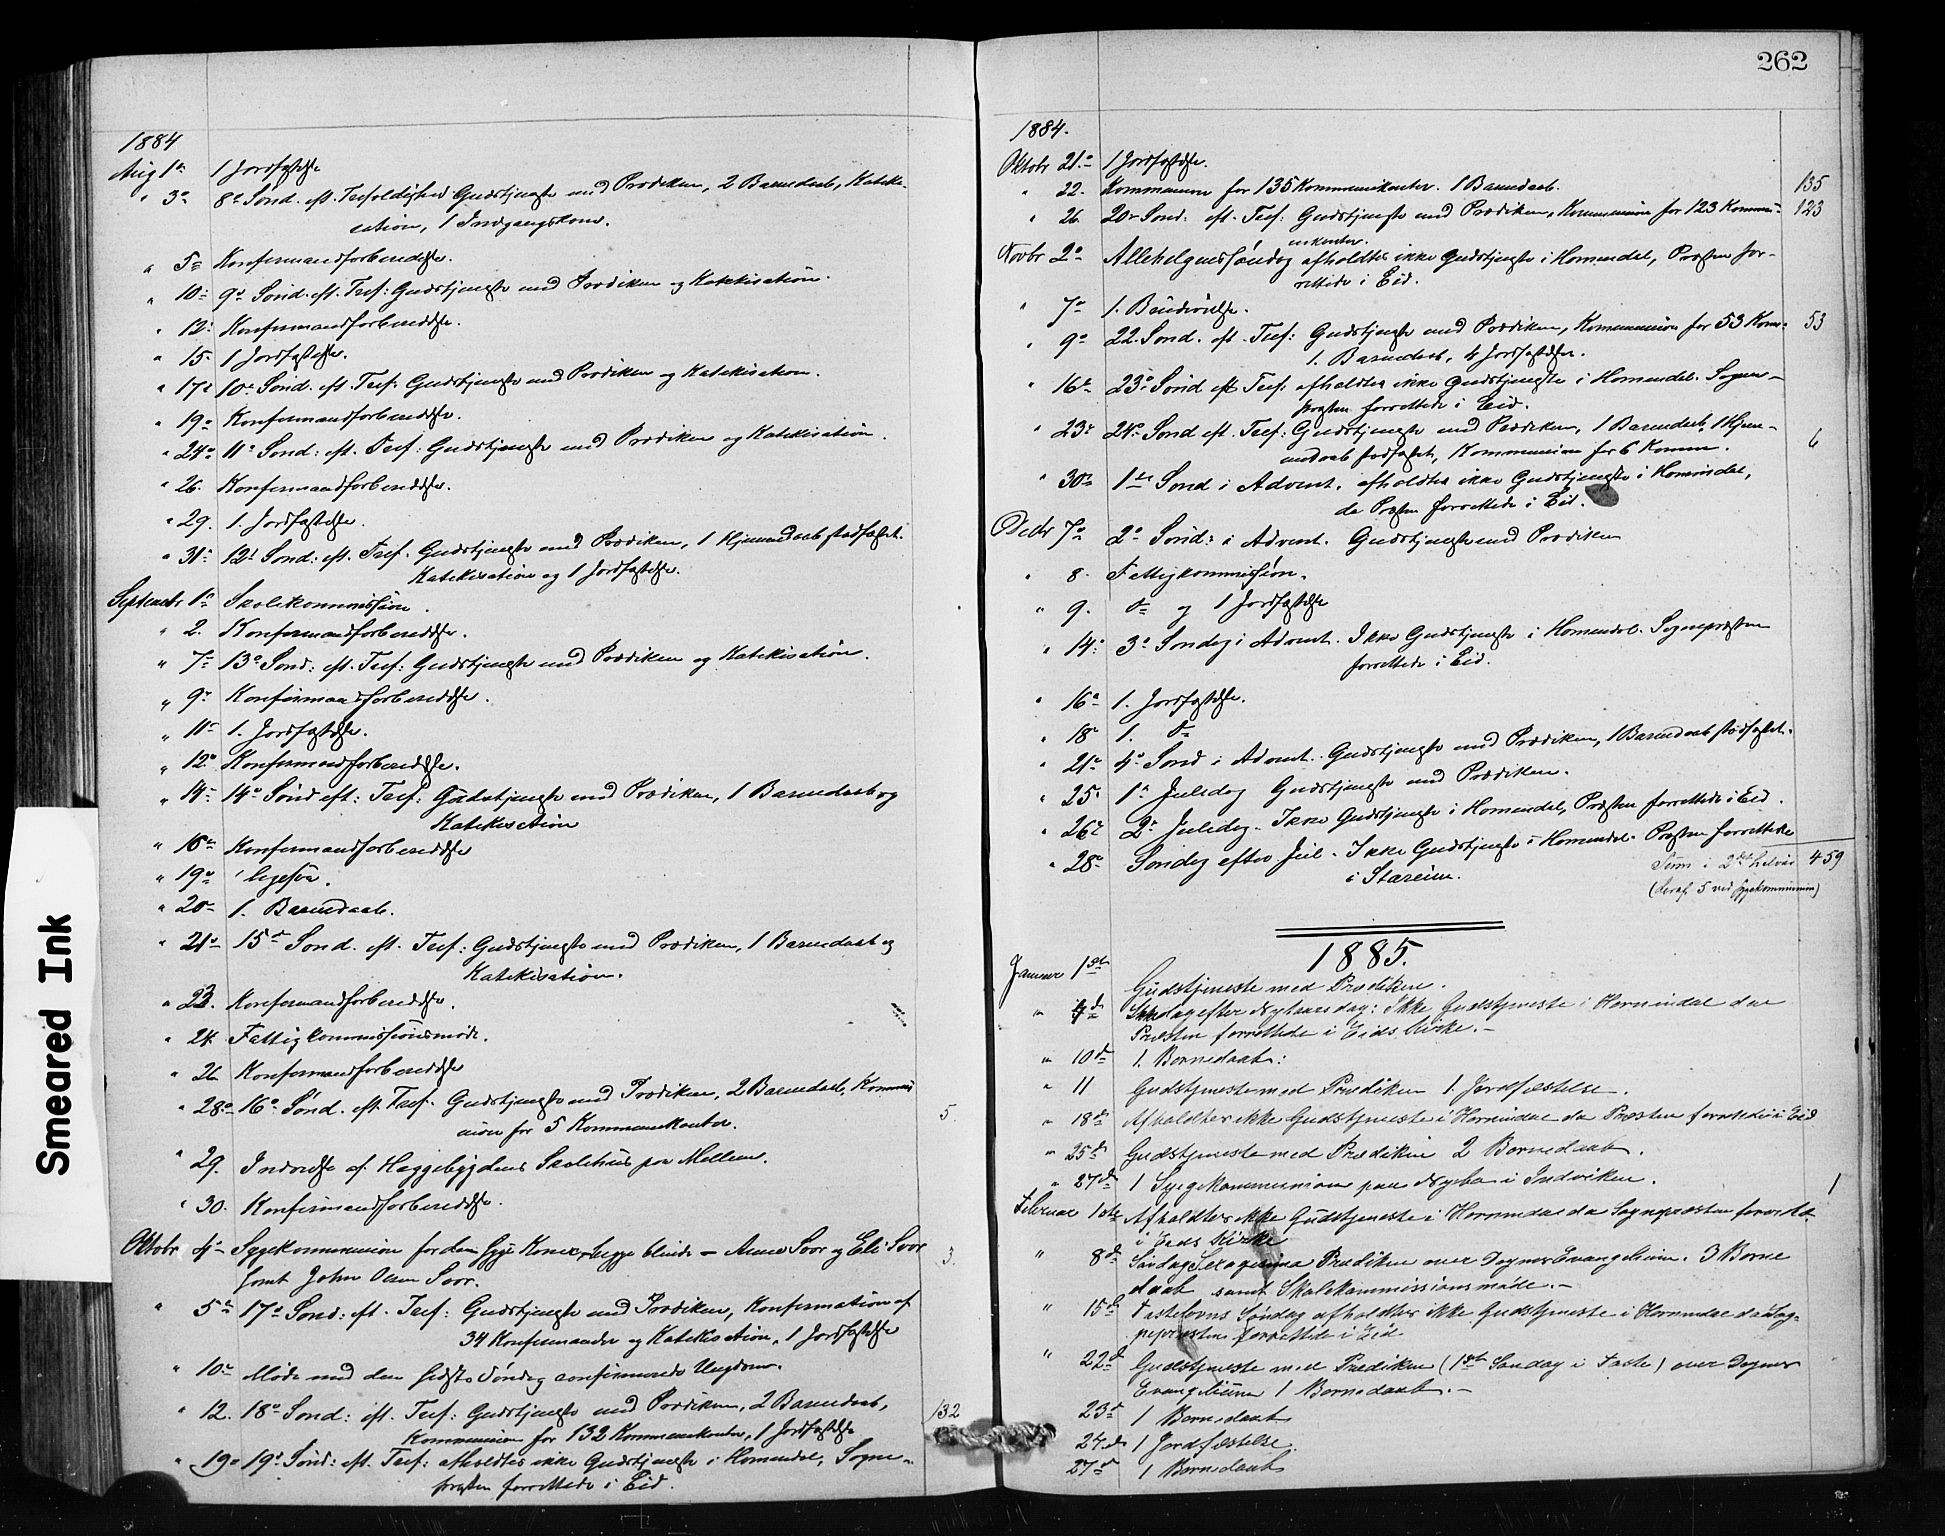 262
1884
Aug 1ste 1 Jordfæstelse
" 3de 8de Sønd. eft. Trefoldighed Gudstjeneste med Prædiken, 2 Barnedaab, Kateki-
sation, 1 Indgangskone.
" 5te Konfirmandforberedelse.
" 10de 9de Sønd. eft. Tref: Gudstjeneste med Prædiken og Katekisation.
" 12te Konfirmandforberedelse.
" 15. 1 Jordfæstelse.
" 17de 10de Sønd. eft. Tref: Gudstjeneste med Prædiken og Katekisation.
" 19de Konfirmandforberedelse.
" 24de 11te Sønd: eft. Tref: Gudstjeneste med Prædiken og Katekisation.
" 26. Konfirmandforberedelse.
" 29. 1. Jordfæstelse.
" 31te 12te Sønd: eft. Tref. Gudstjeneste med Prædiken, 1 Hjemmedaab stadfæstet.
Katekisation og 1 Jordfæstelse.
Septembr 1ste Skolekommission.
" 2. Konfirmandforberedelse.
" 7de 13de Sønd: eft. Tref: Gudstjeneste med Prædiken og Katekisation.
" 9de Konfirmandforberedelse.
" 11te 1. Jordfæstelse.
" 12te Konfirmandforberedelse.
" 14de 14de Sønd eft: Tref: Gudstjeneste med Prædiken, 1 Barnedaab og
Katekisation
" 16de Konfirmandforberedelse
" 19de
" 20de 1. Barnedaab.
" 21de 15de Sønd. eft. Tref: Gudstjeneste med Prædiken, 1 Barnedaab og
Katekisation.
" 23. Konfirmandforberedelse.
" 24. Fattigkommissionsmøde.
" 26 Konfirmandforberedelse
" 28de 16de Sønd. eft. Tref. Gudstjeneste med Prædiken, 2 Barnedaab, Kommu-
nion for 5 Kommunikanter. 5
" 29. Indvielse af Haggebygdens Skolehus paa Mellem.
" 30. Konfirmandforberedelse.
Oktobr 4de Sygekommunion for den syge Kone Svor og Eli Svor
samt John Olsen Svor. 3.
" 5te 17de Sønd: eft. Tref: Gudstjeneste med Prædiken, Konfirmation af
34 Konfirmander og Katekisation, 1 Jordfæstelse
" 10de Møde med den sidste Søndag confirmerede Ungdom.
" 12. 18de Sønd: eft. Tref: Gudstjeneste med Prædiken, 2 Barnedaab,
Kommunion for 132 Kommunikanter, 1 Jordfæstelse 132
" 19de 19de Sønd: eft. Tref: afholdtes ikke Gudstjeneste i Hornindal, Sogne-
præsten forrettede i Eid.
1884.
Oktobr 21de 1 Jordfæstelse.
" 22. Kommunion for 135 Kommunikanter. 1 Barnedaab. 135
" 26 20de Sønd: eft. Tref: Gudstjeneste med Prædiken, Kommunion for 123 Kommu- 123
nikanter.
Novbr 2de Allehelgenssøndag afholdtes ikke Gudstjeneste i Hornindal, Præsten for-
rettede i Eid.
" 7de 1.
" 9de 22. Sønd. eft. Tref: Gudstjeneste med Prædiken, Kommunion for 53 Kom- 53
1. Barnedaab, 4 Jordfæstelser.
" 16de 23de Sønd eft Tref: afholdtes ikke Gudstjeneste i Hornindal. Sogne-
præsten forrettede i Eid.
" 23de 24de Sønd eft. Tref: Gudstjeneste med Prædiken, 1 Barnedaab, 1 Hjem-
medaab stadfæstet, Kommunion for 6 Komm. 6
" 30te 1ste Sønd i Advent. afholdtes ikke Gudstjeneste i Hornindal,
da Præsten forrettede i Eid.
Decbr 7de 2de Sønd: i Advent. Gudstjeneste med Prædiken
" 8. Fattigkommission.
" 9. do og 1 Jordfæstelse
" 14. 3de Søndag i Advent. Ikke Gudstjeneste i Hornindal. Sognepræsten
forrettede i Eid.
" 16de 1. Jordfæstelse.
" 18de 1. do
" 21de 4de Sønd i Advent. Gudstjeneste med Prædiken, 1 Barnedaab stadfæstet.
" 25. 1ste Juledag Gudstjeneste med Prædiken.
" 26de 2den Juledag. Ikke Gudstjeneste i Hornindal, Præsten forrettede i Eid.
" 28de Søndag efter Jul. Ikke Gudstjeneste i Hornindal. Præsten forrettede
i Stareim.
Sum i 2det halvår 459
(deraf 5 ved sygekommunion)
1885.
Januar 1ste Gudstjeneste med Prædiken.
" 4de Søndag efter Nytaarsdag: Ikke Gudstjeneste i Hornindal da
Præsten forrettede i Eids Kirke.-
" 10de 1. Barnedaab:
" 11 Gudstjeneste med Prædiken 1. Jordfæstelse.
" 18de Afholdtes ikke Gudstjeneste i Hornindal da Præsten forrettede i Eid
" 25de Gudstjeneste med Prædiken 2 Barnedaab.
" 27de 1 Sygekommunion paa Nybø i Indviken. 1
Februar 1ste Afholdtes ikke Gudstjeneste i Hornindal da Sognepræsten forrettede
i Eids Kirke
" 8de Søndag Sexagesima Prædiken over Dagens Evangelium. 3 Barne
daab samt Skolekommissionsmøde.-
" 15de Fastelavns Søndag afholdtes ikke Gudstjeneste i Hornindal da Sog-
nepræsten forrettede i Eid
" 22de Gudstjeneste med Prædiken (1ste Søndag i Faste) over Dagens
Evangelium 1 Barnedaab.-
23de 1 Barnedaab
24de 1 Jordfæstelse.
27de 1 Barnedaab
Smeared Ink